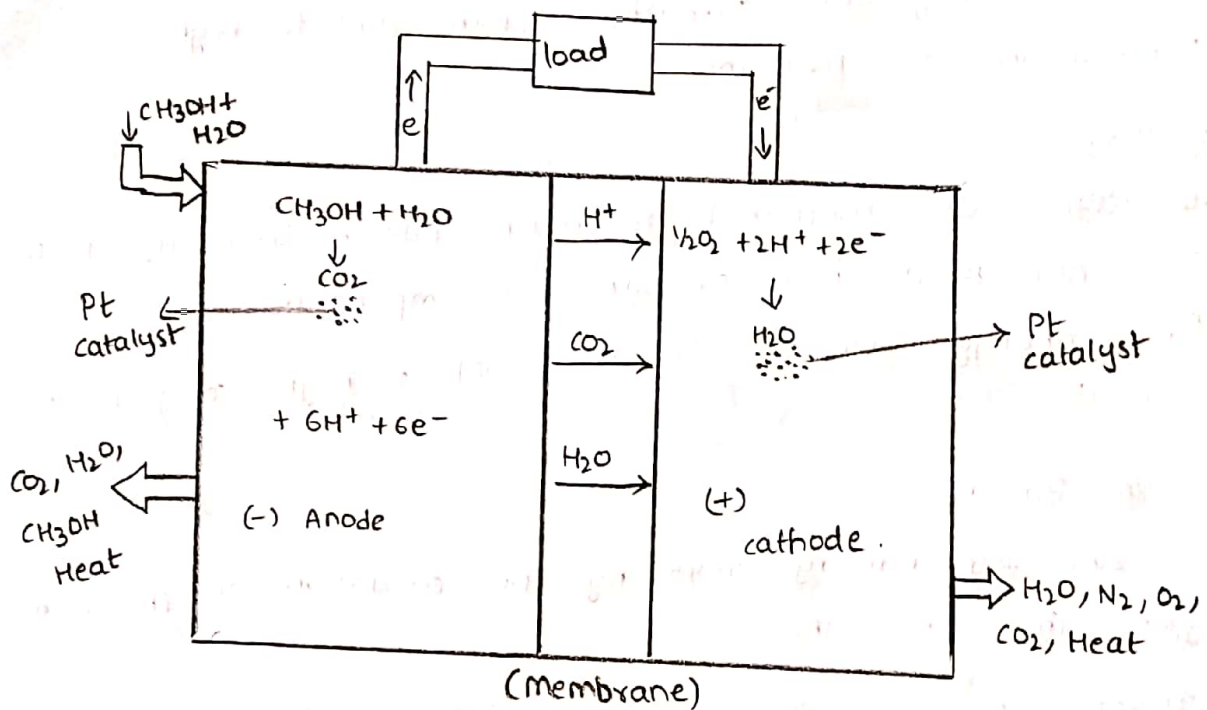 load
e
e⁻
CH3OH +
H2O
CH3OH + H2O
↓
CO2
Pt
catalyst
+ 6H⁺ + 6e⁻
(-) Anode
CO2, H2O,
CH3OH
Heat
H⁺
CO2
H2O
1/2O2 + 2H⁺ + 2e⁻
↓
H2O
Pt
catalyst
(+)
cathode.
H2O, N2, O2,
CO2, Heat
(membrane)